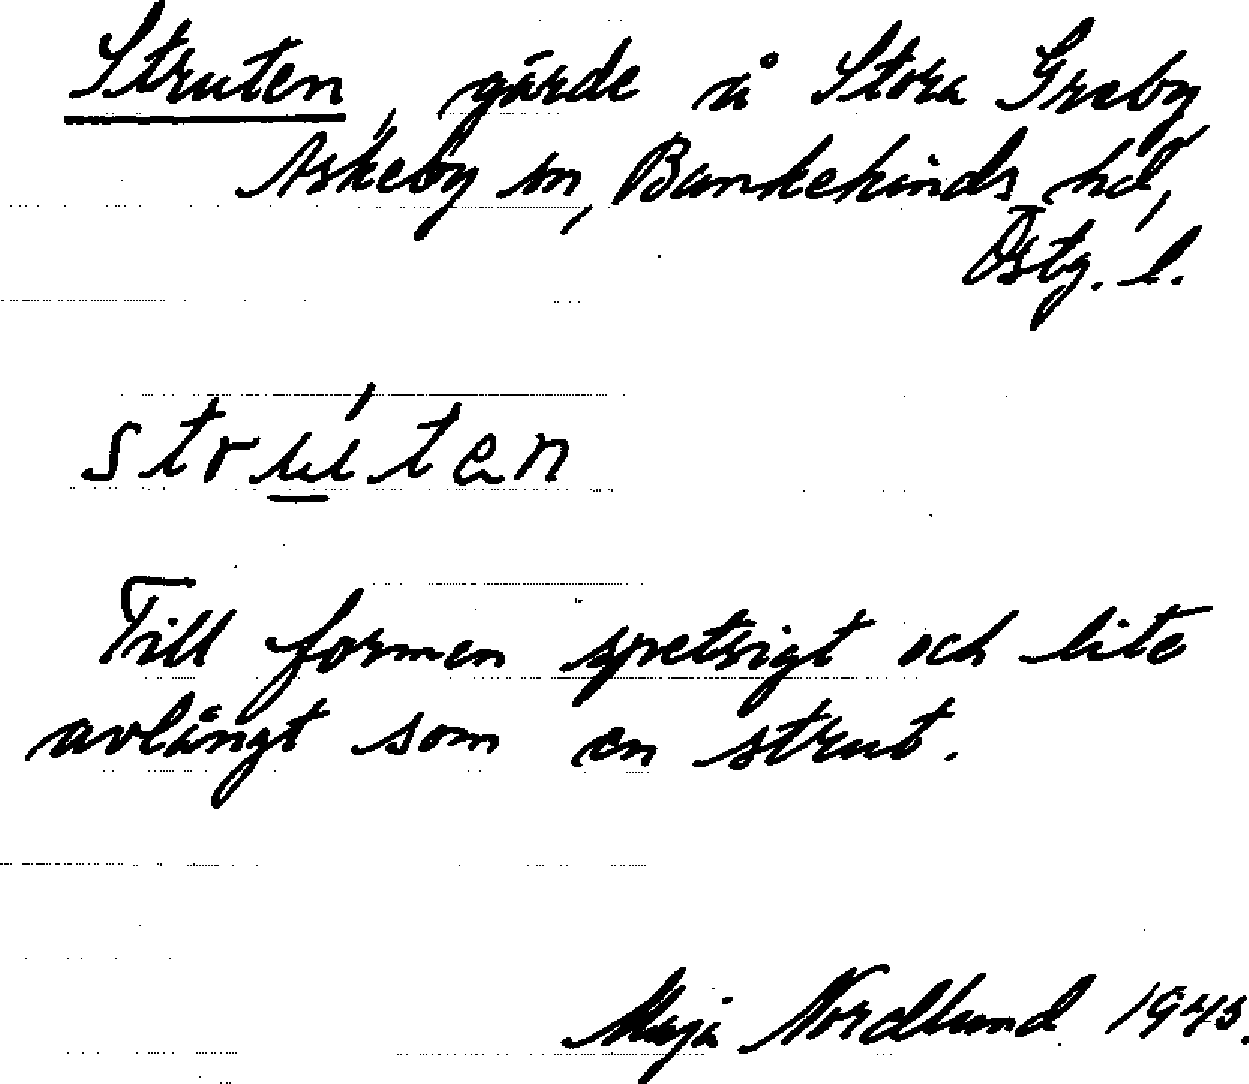 Struten, gärde å Stora Greby
Askeby sn, Bankekinds hd,
Östg. l.
strúten
Till formen spetsigt och lite
avlångt som en strut.
Maja Nordlund 1943.